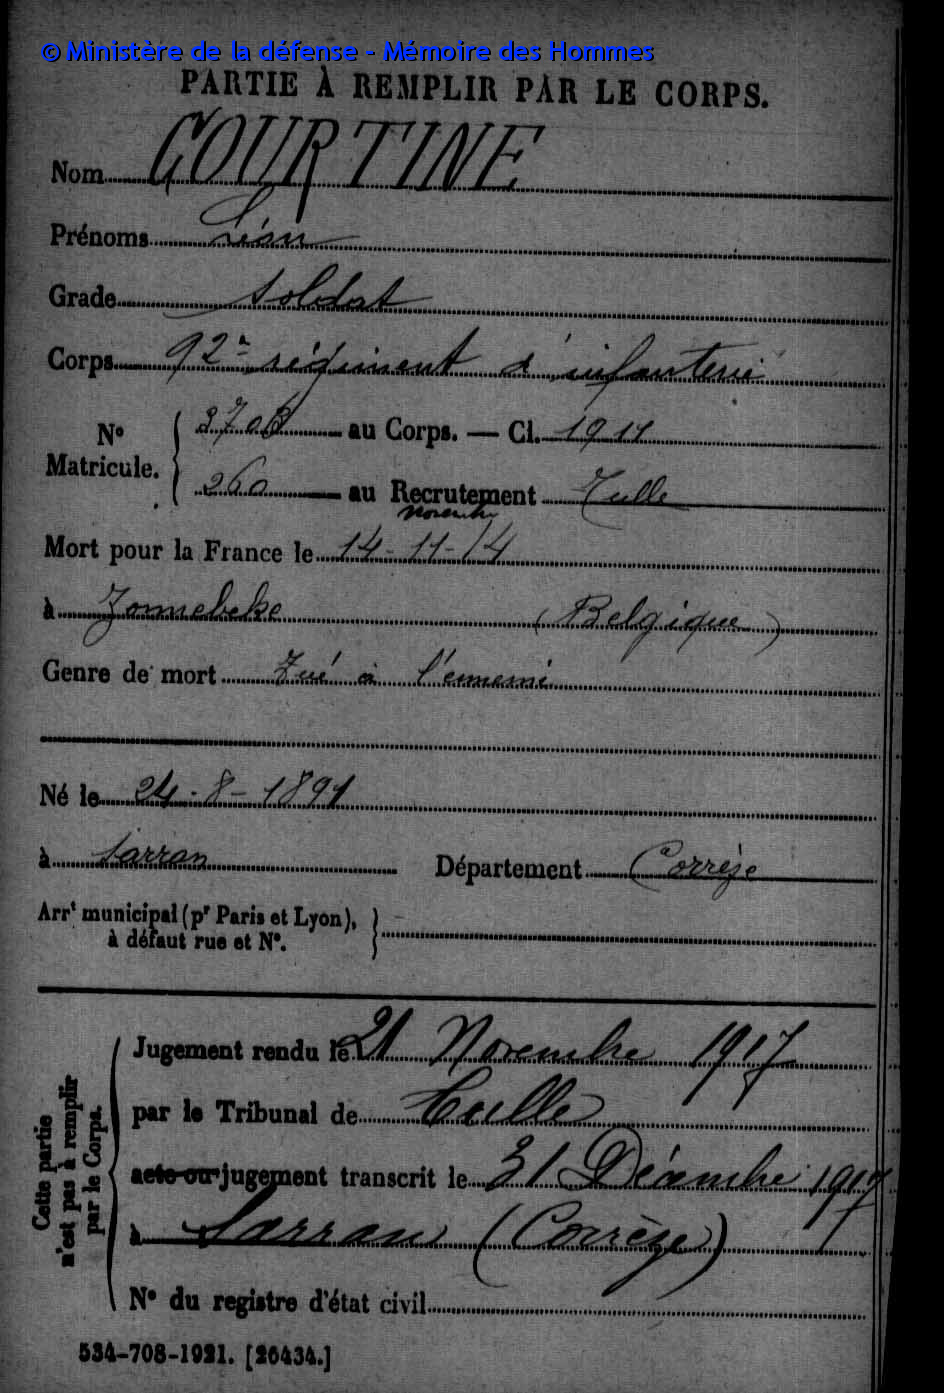 © Ministère de la défense - Mémoire des Hommes
PARTIE À REMPLIR PAR LE CORPS.
Nom COURTINE
Prénoms Léon
Grade Soldat
Corps 92e régiment d'infanterie
No Matricule. { 3708 au Corps. — Cl. 1911
260 au Recrutement Tulle
novembre
Mort pour la France le 14-11-14
à Zonnebeke (Belgique)
Genre de mort Tué à l'ennemi
Né le 24-8-1891
à Sarran Département Corrèze
Arrt municipal (pr Paris et Lyon), }
à défaut rue et No.
Cette partie n'est pas à remplir par le Corps.
Jugement rendu le 21 Novembre 1917
par le Tribunal de Tulle
acte ou jugement transcrit le 31 Décembre 1917
à Sarran (Corrèze)
No du registre d'état civil
534-708-1921. [26434.]